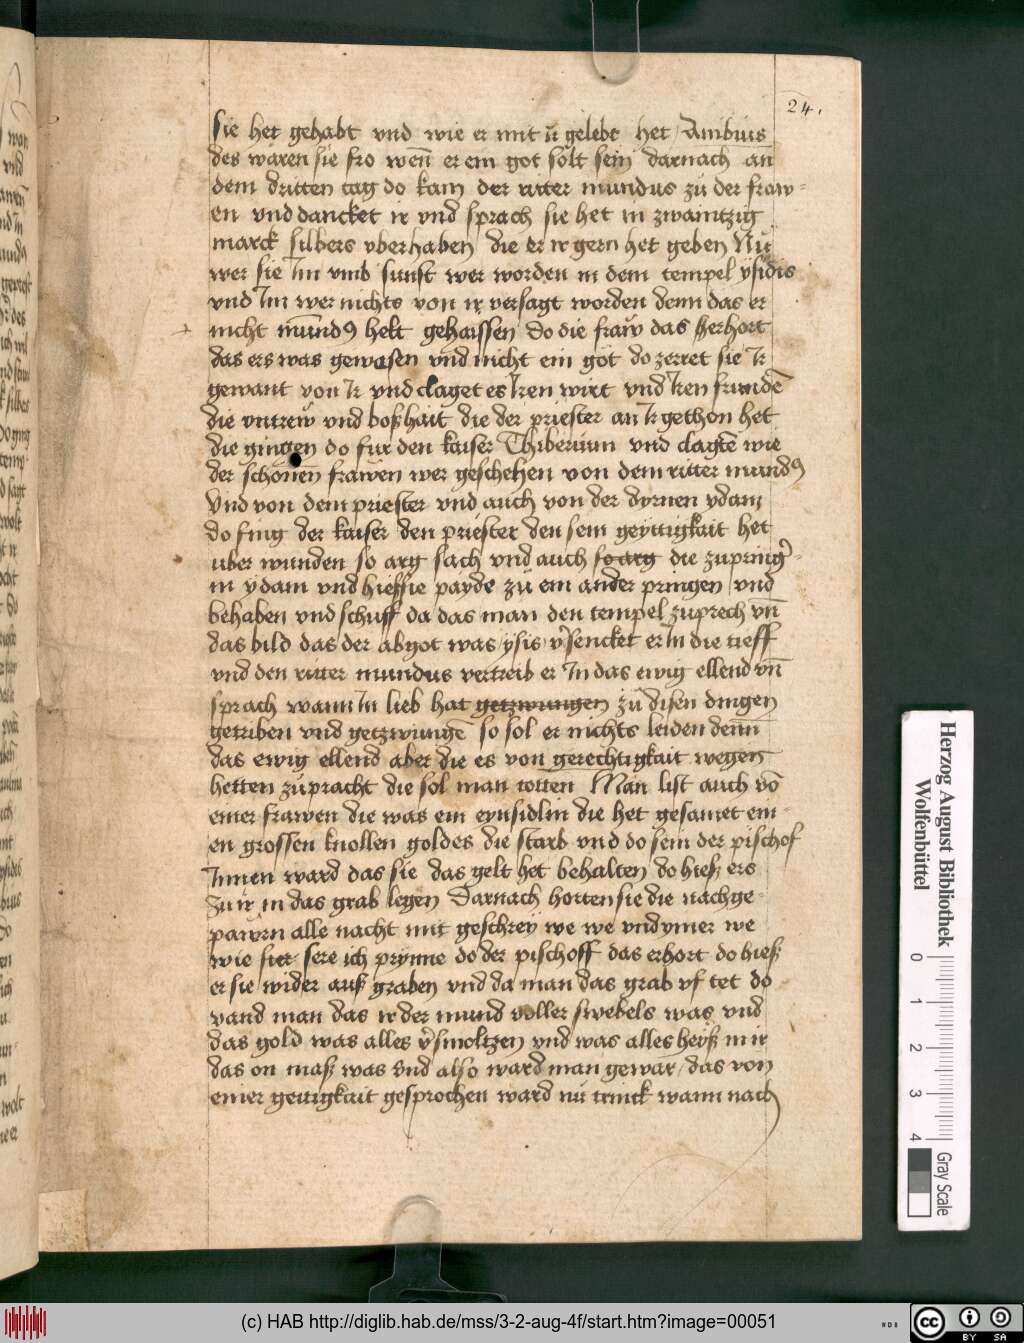 24.
sie het gehabt vnd wie er mit ir gelebt het / Anibius
des waren sie fro wen̄ er ein got solt sein darnach an
dem dritten tag do kam der ritter mundus zu der fraw-
en vnd dancket ir vnd sprach sie het in zwaintzig
marck silbers vberhaben die er ir gern het geben Nu
wer sie Im vmb sunst wer worden in dem tempel ysidis
vnd Im wer nichts von ir versagt worden denn das er
nicht mundꝰ helt gehaissen Do die fraw das erhort
das ers was gewesen vnd nicht ein got do zerret sie Ir
gewant von Ir vnd claget es Iren wirt vnd Iren frundē
die vntrew vnd boßhait die der priester an Ir gethon het
die gingen do fur den kaiser Thiberium vnd clagtē wie
der schonen frawen wer geschehen von dem ritter mundꝰ
Vnd von dem priester vnd auch von der dyrnen ydam
do fing der kaiser den priester den sein geyttigkait het
uber wunden so arg sach vnd auch so arg die zupringr̄-
in ydam vnd hieß sie payde zu ein ander pringen vnd
behaben vnd schuff da das man den tempel zuprech vn̄
das bild das der abgot was ysis v̄sencket er In die tieff
vnd den ritter mundus vertreib er In das ewig ellend vn̄
sprach wann In lieb hat getzwungen zu disen dingen
getriben vnd getzwungē so sol er nichts leiden denn
das ewig ellend aber die es von gerechtigkait wegen
hetten zupracht die sol man totten Man list auch vō
einer frawen die was ein eynsidlin die het gesamet ein-
en grossen knollen goldes die starb vnd do sein der pischof
Innen ward das sie das gelt het behalten do hieß ers
zu ir in das grab legen Darnach horten sie die nachge
pawrn alle nacht mit geschrey we we vnd ymer we
wie sere ich prynne do der pischoff das erhort do hieß
er sie wider auß graben vnd da man das grab vf tet do
vand man das ir der mund voller swebels was vnd
das gold was alles v̄smoltzen vnd was alles heyß in ir
das on maß was Vnd also ward man gewar / das von
einer geitigkait gesprochen ward nu trinck wann nach
Herzog August Bibliothek
Wolfenbüttel
0 1 2 3 4
Gray Scale
(c) HAB http://diglib.hab.de/mss/3-2-aug-4f/start.htm?image=00051
WDB
cc BY SA